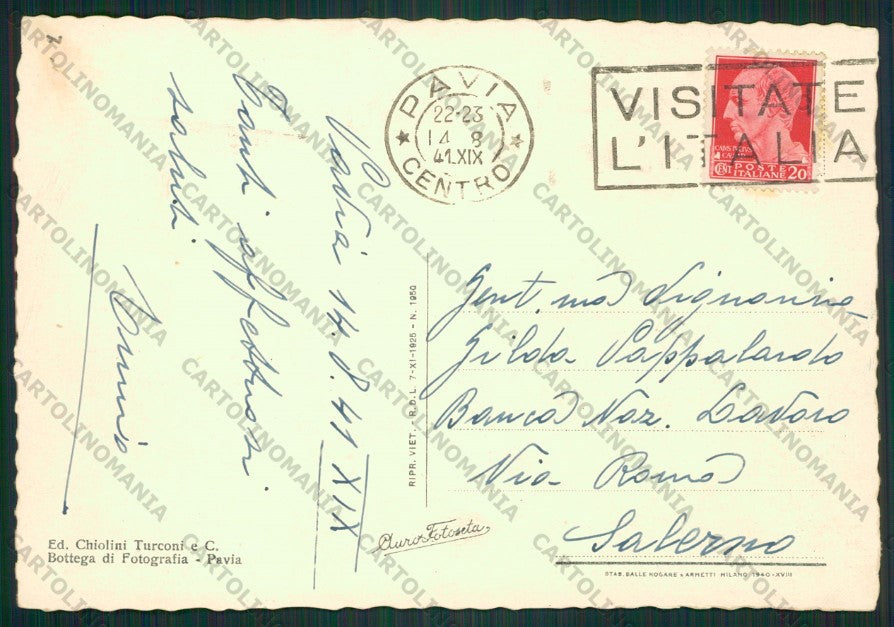 PAVIA
22-23
14 8
41.XIX
CENTRO
VISITATE
L'ITALIA
CENT POSTE
ITALIANE 20
Pavia 14.8.41 XIX
Tanti affettuosi
saluti
Ennio
Gent.ma Signorina
Gilda Pappalardo
Banca Naz. Lavoro
Via Roma
Salerno
RIPR. VIET. - R.D.L. 7-XI-1925 - N. 1950
Ed. Chiolini Turconi e C.
Bottega di Fotografia - Pavia
AuroFotoseta
STAB. DALLE NOGARE e ARMETTI MILANO 1940-XVIII
CARTOLINOMANIA